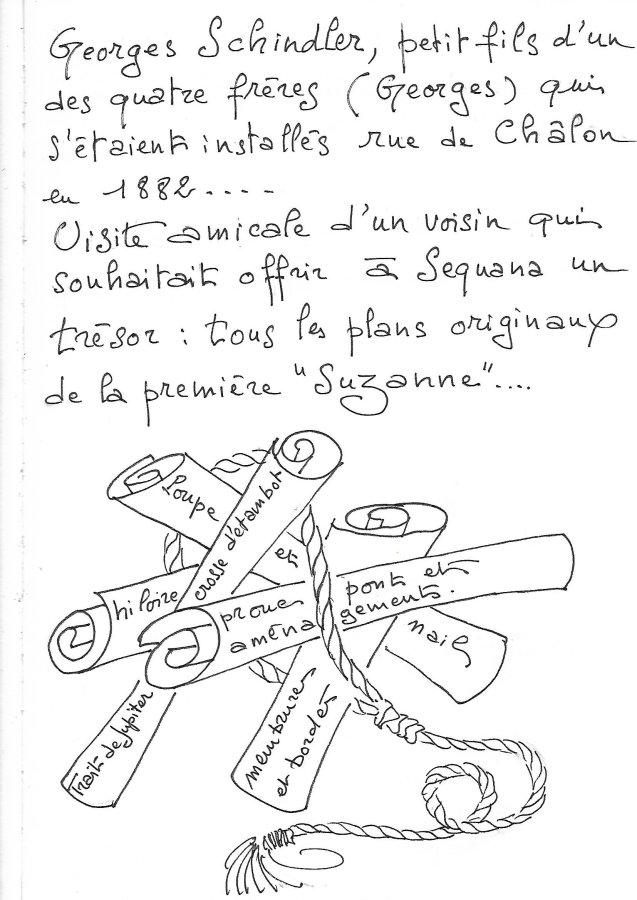 Georges Schindler, petit fils d'un
des quatre frères (Georges) qui
s'étaient installés rue de Châlon
en 1882....
Visite amicale d'un voisin qui
souhaitait offrir à Sequana un
trésor : tous les plans originaux
de la première "Suzanne"....
Poupe
et
nail
crosse d'étambot
Trait de Jupiter
hiloire
proue ponts et
aménagements.
membrures
et bordés